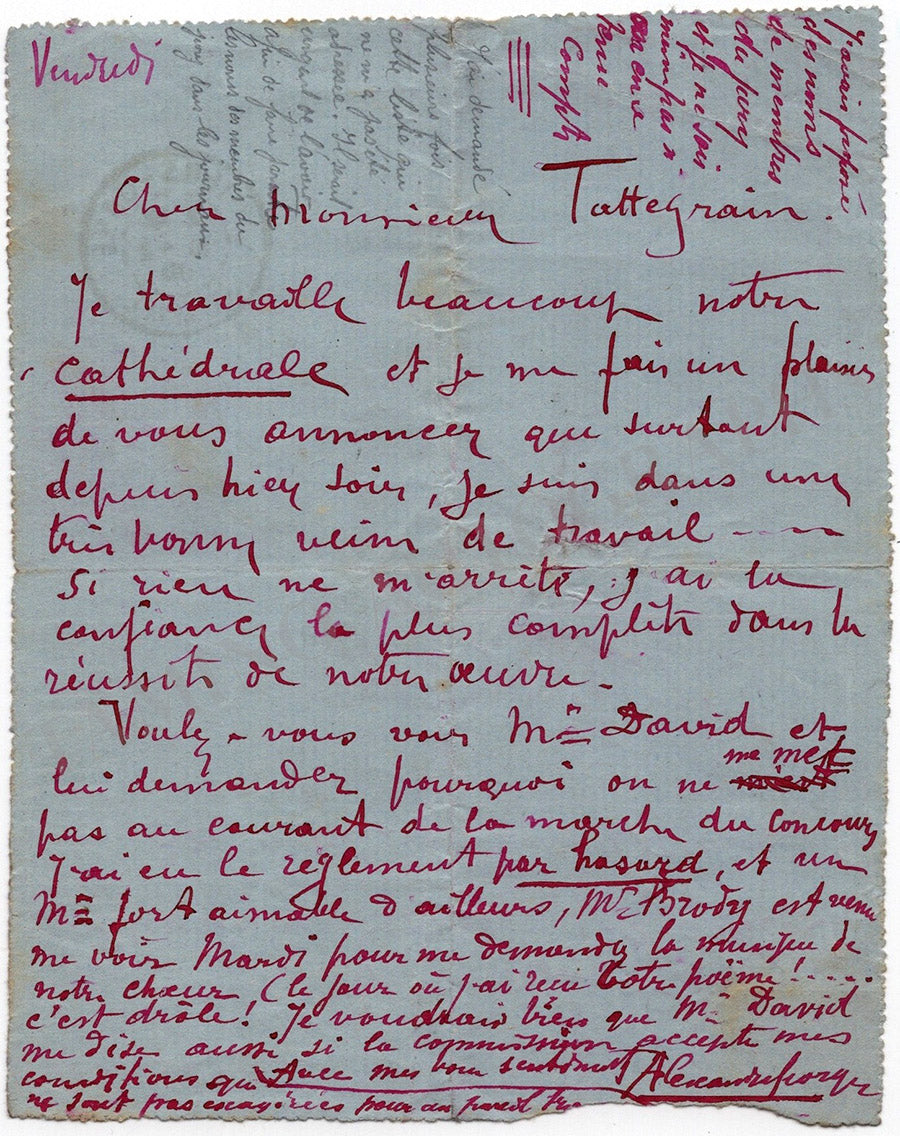 Vendredi
Cher Monsieur Tattegrain.
Je travaille beaucoup notre
cathédrale et je me fais un plaisir
de vous annoncer que surtout
depuis hier soir, je suis dans une
très bonne veine de travail ——
Si rien ne m'arrête, j'ai la
confiance la plus complète dans la
réussite de notre œuvre.
Voulez-vous voir Mr David et
lui demander pourquoi on ne me met
pas au courant de la marche du concours
J'ai eu le règlement par hasard, et un
Mr fort aimable d'ailleurs, Mr Brody est venu
me voir Mardi pour me demander la musique de
notre chœur (le jour où j'ai reçu votre poëme!.....
c'est drôle! Je voudrais bien que Mr David
me dise aussi si la commission accepte mes
conditions qui
ne sont pas exagérées pour un pareil
Avec mes bons sentiments
Alexandre Georges
J'avais proposé
des noms
de membres
du jury
et je ne sais
même pas si
on en a
tenu
Compte
J'ai demandé
plusieurs fois
cette liste qui
ne m'a pas été
adressée. Il serait
urgent de l'avoir
afin de faire paraître
les noms des membres du
jury dans les journaux